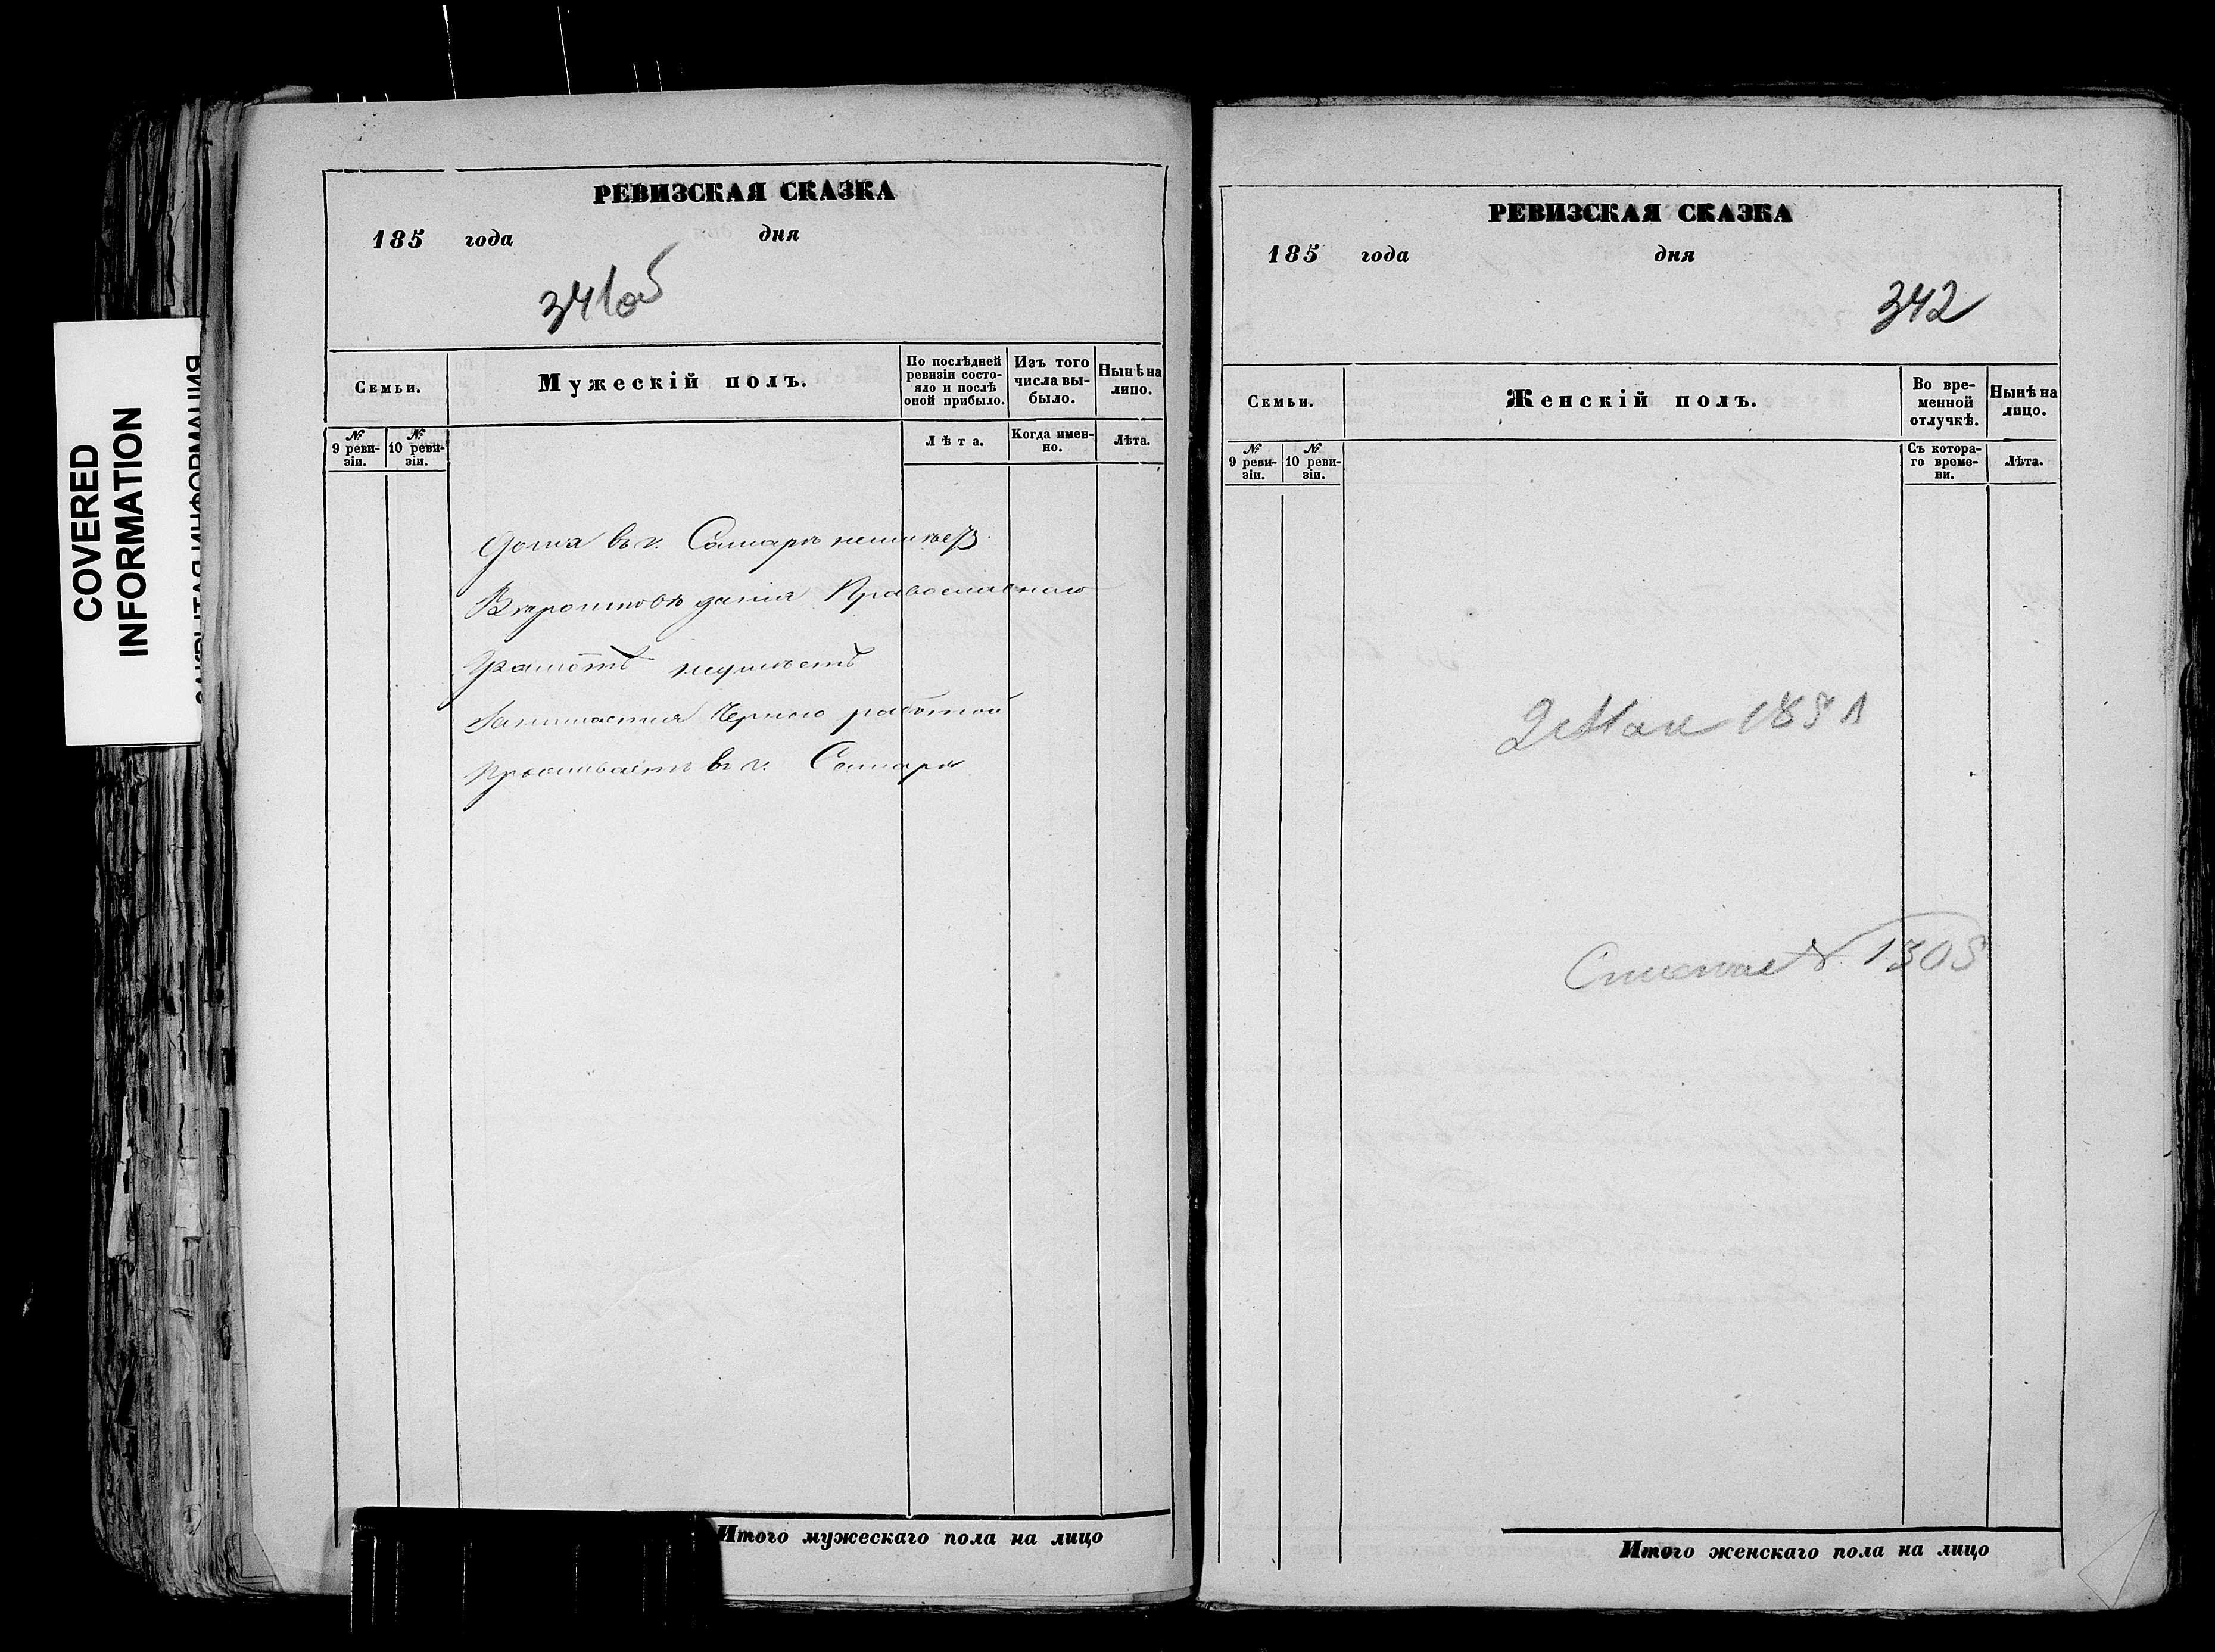 COVERED
INFORMATION
РЕВИЗСКАЯ СКАЗКА
185 года дня
341об
Семьи.
Мужескій полъ.
По послѣдней ревизіи состояло и послѣ оной прибыло.
Изъ того числа выбыло.
Нынѣ на лицо.
№ 9 ревизіи.
№ 10 ревизіи.
Лѣта.
Когда именно.
Лѣта.
Дома въ г. Самарѣ неимѣетъ
Вѣроисповѣданія Православнаго
Грамотѣ неумѣетъ
Занимается Черною работой
Проживаетъ въ г. Самарѣ
Итого мужескаго пола на лицо
РЕВИЗСКАЯ СКАЗКА
185 года дня
342
Семьи.
Женскій полъ.
Во временной отлучкѣ.
Нынѣ на лицо.
№ 9 ревизіи.
№ 10 ревизіи.
Съ котораго времени.
Лѣта.
2 Мая 1858
№ 1305
Итого женскаго пола на лицо